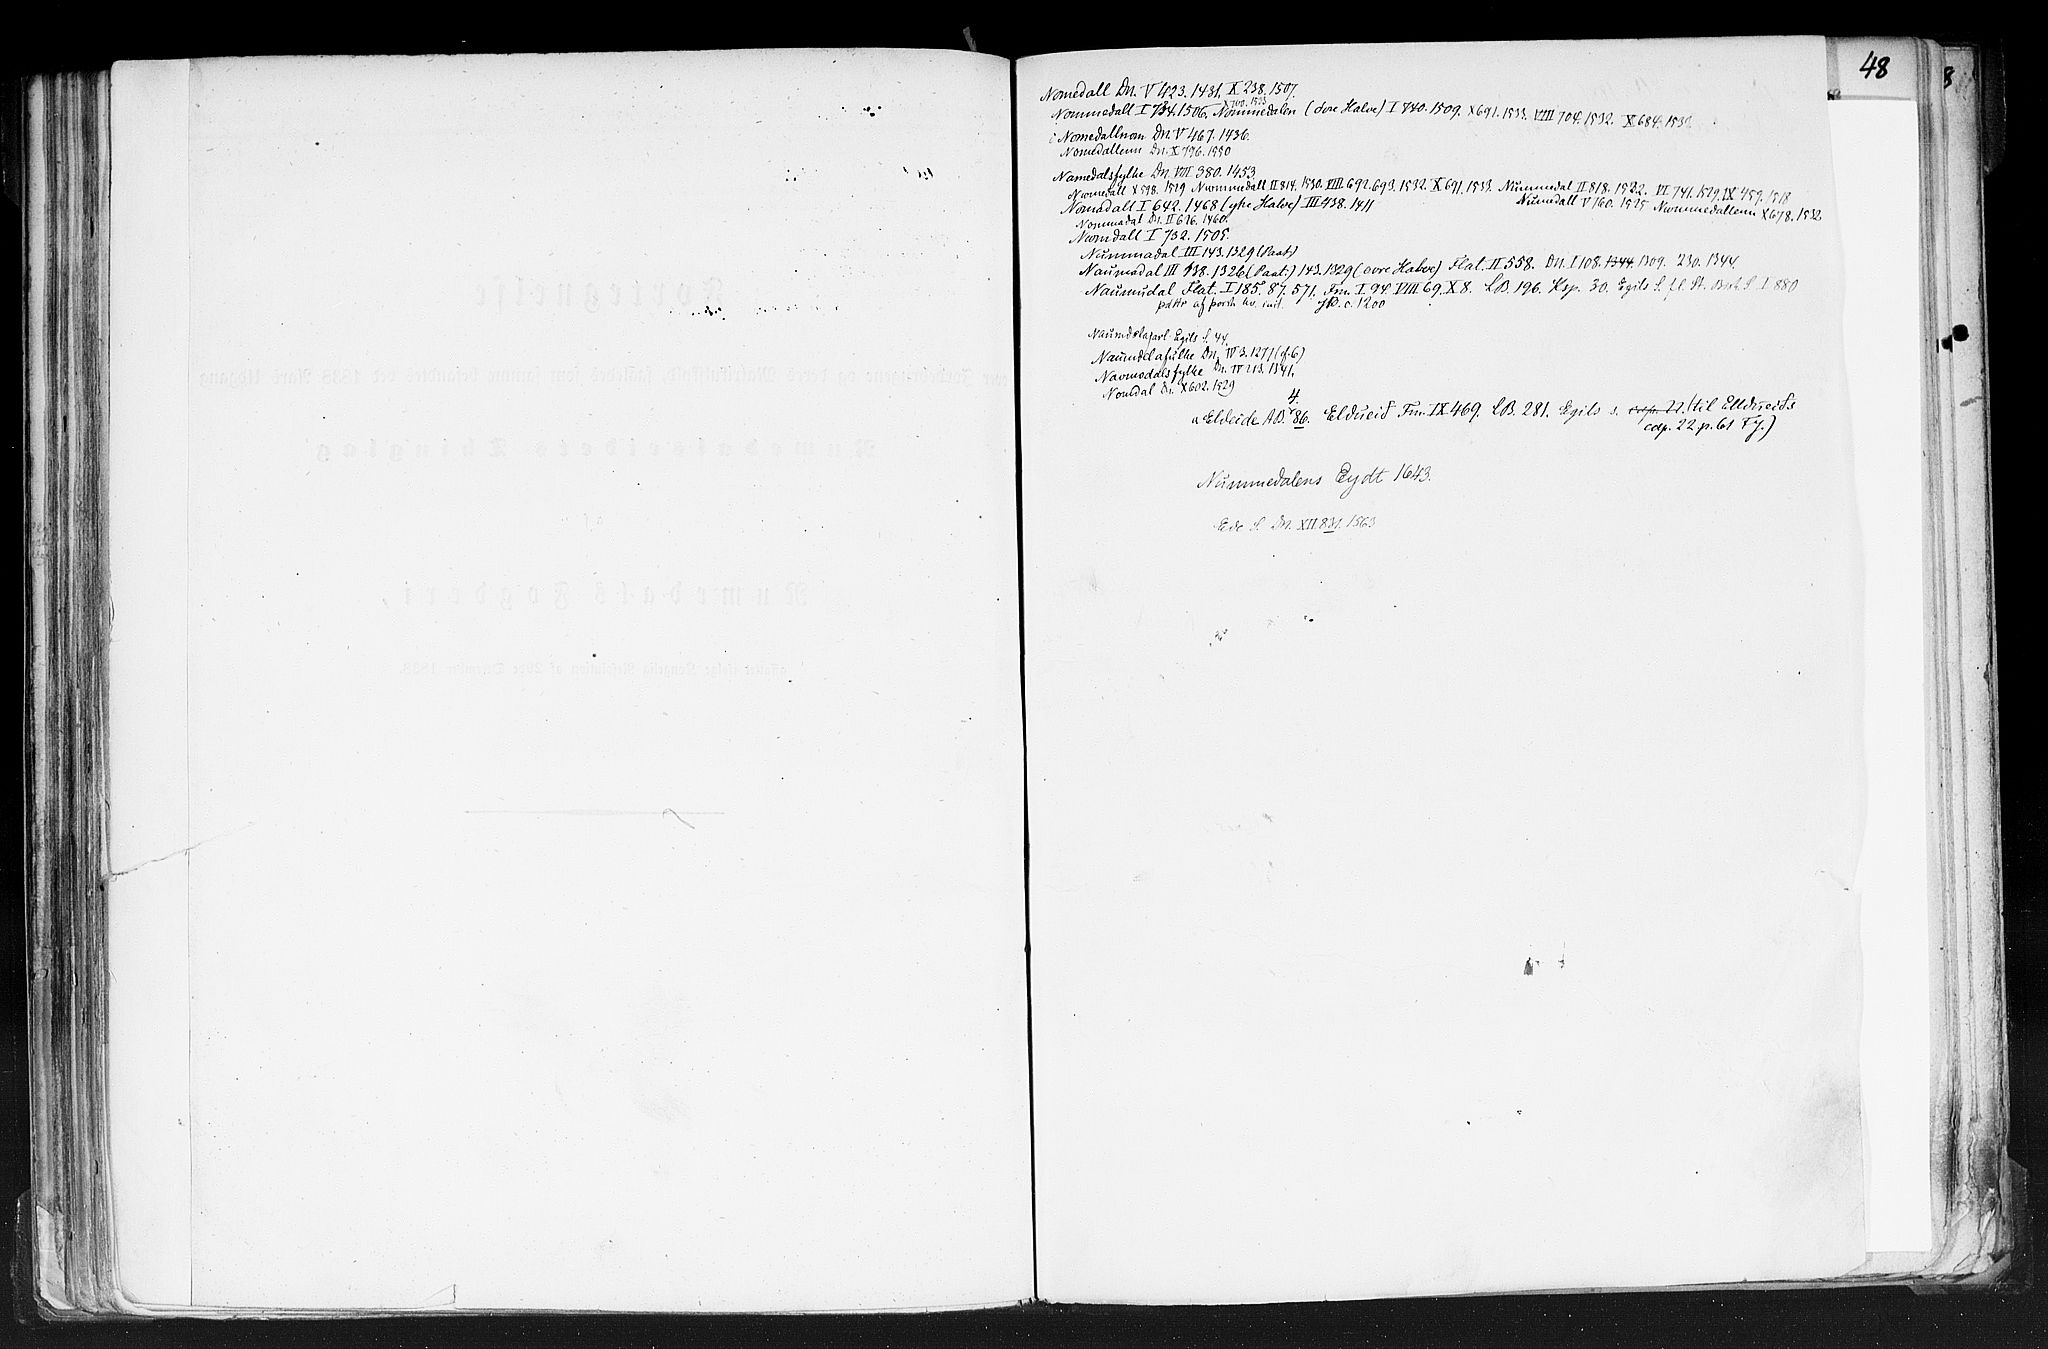 48
Nomedall Dn. V 423. 1431. X 238. 1507.
X 700. 1533
Nommedall I 734. 1506. Nommedalen (øvre Halve) I 740. 1509. X 691. 1533. VIII 704. 1532. X 684. 1532
i Nomedallnom Dn. V 467. 1436.
Nomedallenn Dn. X 796. 1550
Namedalsfylke Dn. VIII 380. 1453
Nwmedall X 598. 1529 Nwmmedall II 814. 1530. VIII 692. 693. 1532. X 691. 1533. Nummedal II 818. 1522. VI 741. 1529. IX 459. 1518
Nomadall I 642. 1468 (ytre Halve) III 438. 1411 Numedall V 760. 1525 Nwmmedallenn X 678. 1532
Nommadal Dn. II 626. 1460.
Nwmdall I 732. 1505.
Nummadal III 143. 1329 (Paat.)
Naumadal III 138. 1326 (Paat.) 143. 1329 (øvre Halve) Flat. II 558. Dn. I 108. 1344. 1309. 230. 1344.
Naumudal Flat. I 185. 87. 571. Fm. I 94. VIII 69. X 8. LB. 196. Ksp. 30. Egils S. fl. St. Bisk. S. I 880
þáttr af þorst. hv. inst. JR. c. 1200
Naumdelajarl Egils S. 44.
Naumdelafulke Dn. IV 3. 1271 (f. 6)
Navmdalsfylke Dn. IV 213. 1341.
Nomdal Dn. X 602. 1529
4.
a Eldeide AB. 86. Eldueið Fm. IX 469. LB. 281. Egils s. cap. 22. (til Elldueiðs
cap. 22. p. 61 FJ.)
Nummedalens Eydt 1643.
Ede S. Dn. XII 831. 1563